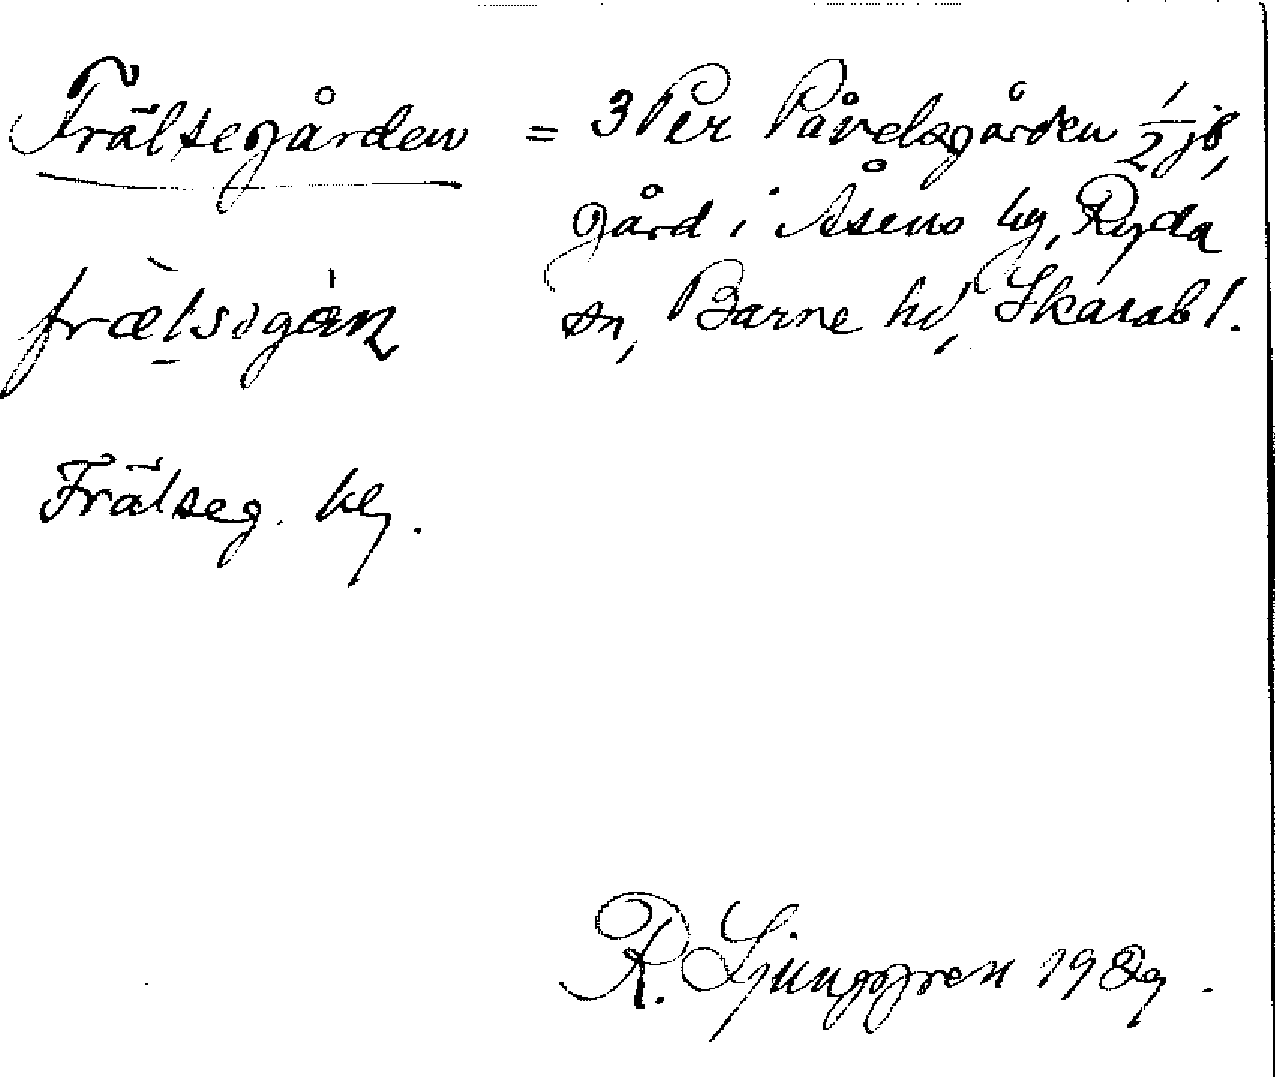 Frälsegården = 3 Per Påvelsgården 1/2 jb,
gård i Åsens by, Ryda
sn, Barne hd, Skarabl.
frælsegán
Frälseg. kly.
R. Ljunggren 1929.